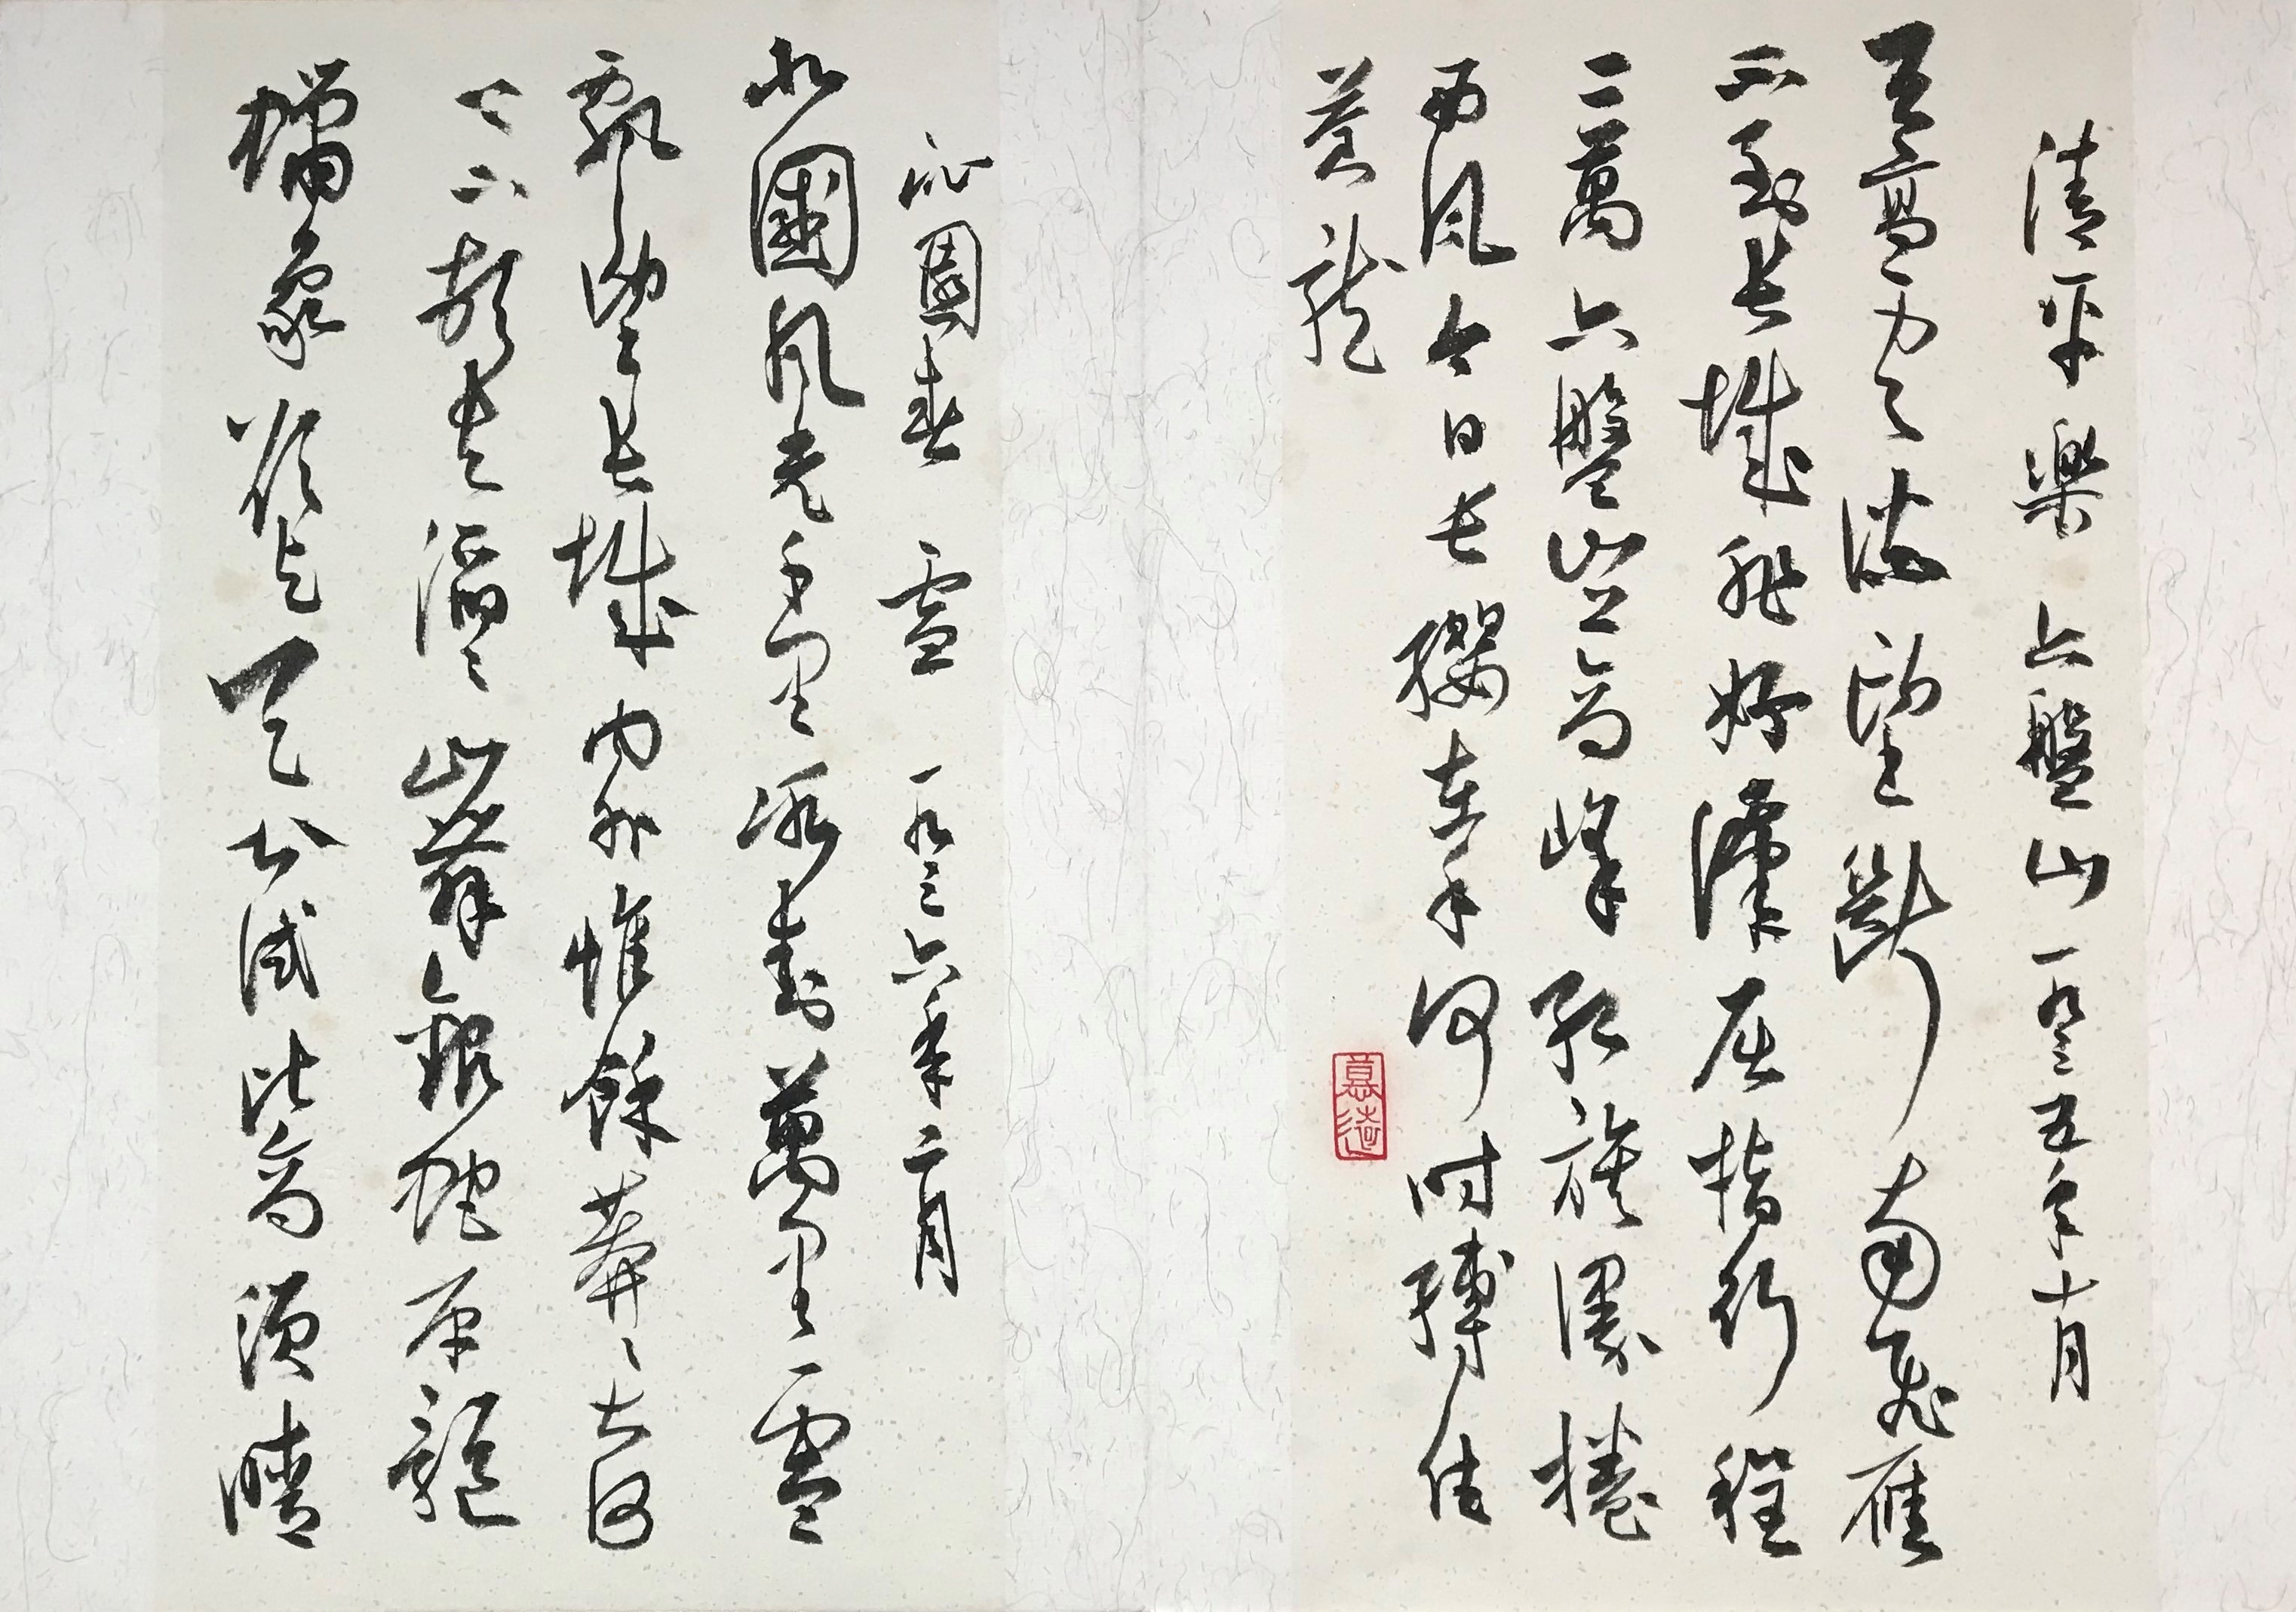 清平樂 六盤山 一九三五年十月
天高雲淡望斷南飛雁
不到長城非好漢屈指行程
二萬六盤山上高峰紅旗漫捲
西風今日長纓在手何時縛住
蒼龍
沁園春 雪 一九三六年二月
北國風光千里冰封萬里雪
飄望長城內外惟餘莽〻大河
上下頓失滔〻山舞銀蛇原馳
蠟象欲與天公試比高須晴